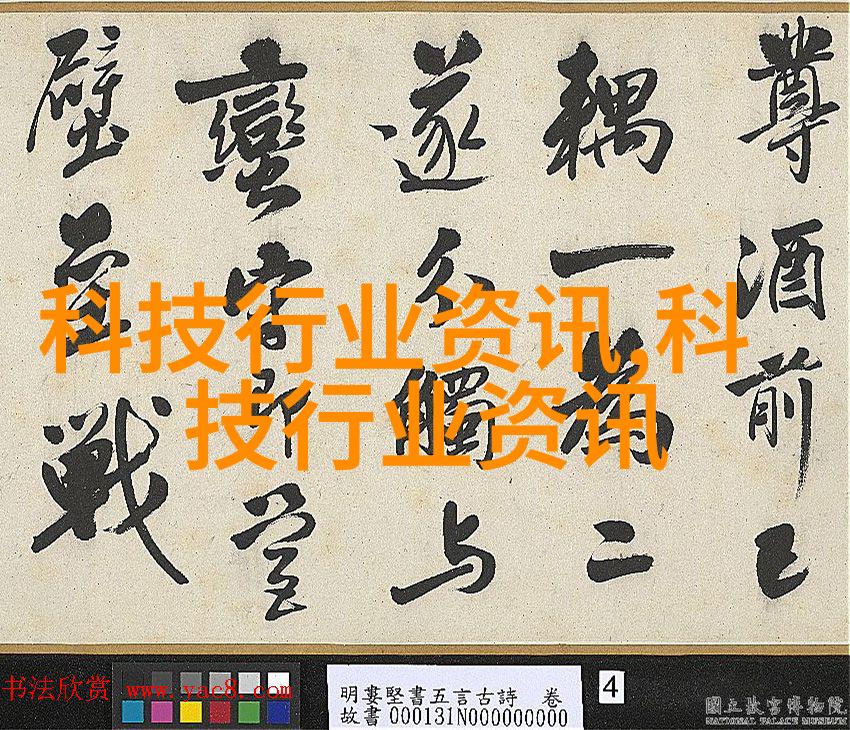 尊酒前已
耦一為二
遂分觸与
蠻即營
壁壘戰
科技行业资讯,科
技行业资讯
书法欣赏 www.yac8.com
明婁堅書五言古詩 卷
故書 000131N000000000
4
國立故宮博物院
NATIONAL PALACE MUSEUM